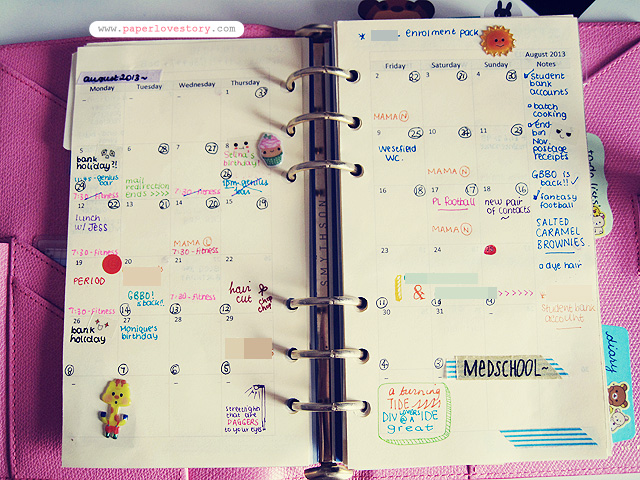 www.paperlovestory.com
* enrolment pack
august 2013~
Monday Tuesday Wednesday Thursday
Friday Saturday Sunday
August 2013
Notes
1
2 3 4
student
bank
accounts
batch
cooking
MAMA N
end
bin
Nov.
postage
receipts
5 6 7 8
bank
holiday?!
Selina's
birthday!
9 10 11
Westfield
WC.
MAMA N
GBBO is
back!!
fantasy
football
7:30 - fitness
mail
redirection
ends >>>>
7:30 - fitness
12 13 14 15
Lunch
w/ Jess
MAMA L
7:30 - fitness
7:30 - fitness
16 17 18
PL football
new pair
of contacts~
MAMA N
SALTED
CARAMEL
BROWNIES
dye hair
19 20 21 22
PERIOD
GBBO!
is back!!
hair
cut
chop
chop
7:30 - fitness
7:30 - fitness
23 24
&
>>>>>
* student bank
account
26 27 28 29
bank
holiday
Monique's
birthday
30 31
MEDSCHOOL~
straightline
that are
DAGGERS
to your eye
a burning
TIDE
DIV LOVERS IDE
@ A
great
SMYTHSON
todo lists
diary